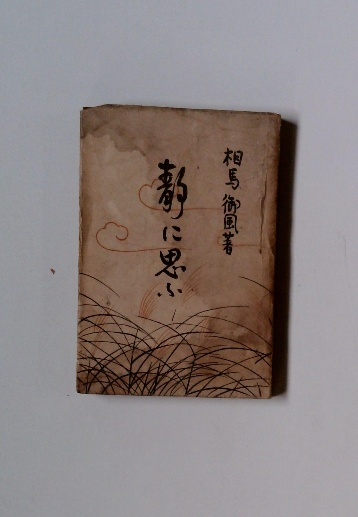 相馬御風著
靜に思ふ